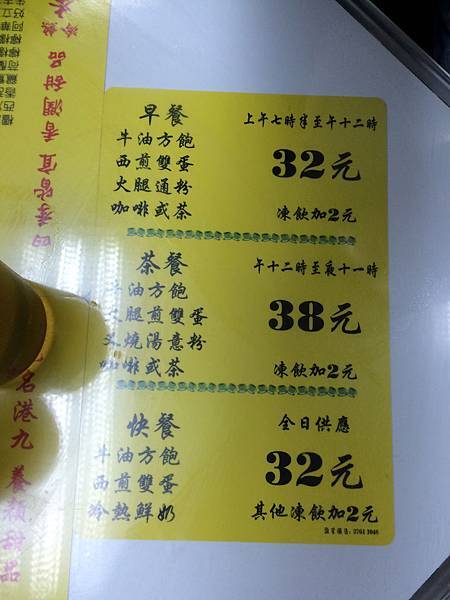 早餐
上午七時半至午十二時
牛油方飽
西煎雙蛋
火腿通粉
咖啡或茶
32元
凍飲加2元
茶餐
午十二時至夜十一時
牛油方飽
火腿煎雙蛋
叉燒湯意粉
咖啡或茶
38元
凍飲加2元
快餐
全日供應
牛油方飽
西煎雙蛋
冷熱鮮奶
32元
其他凍飲加2元
四季皆宜 香潤甜品
名港九 養顏甜品
冷熱